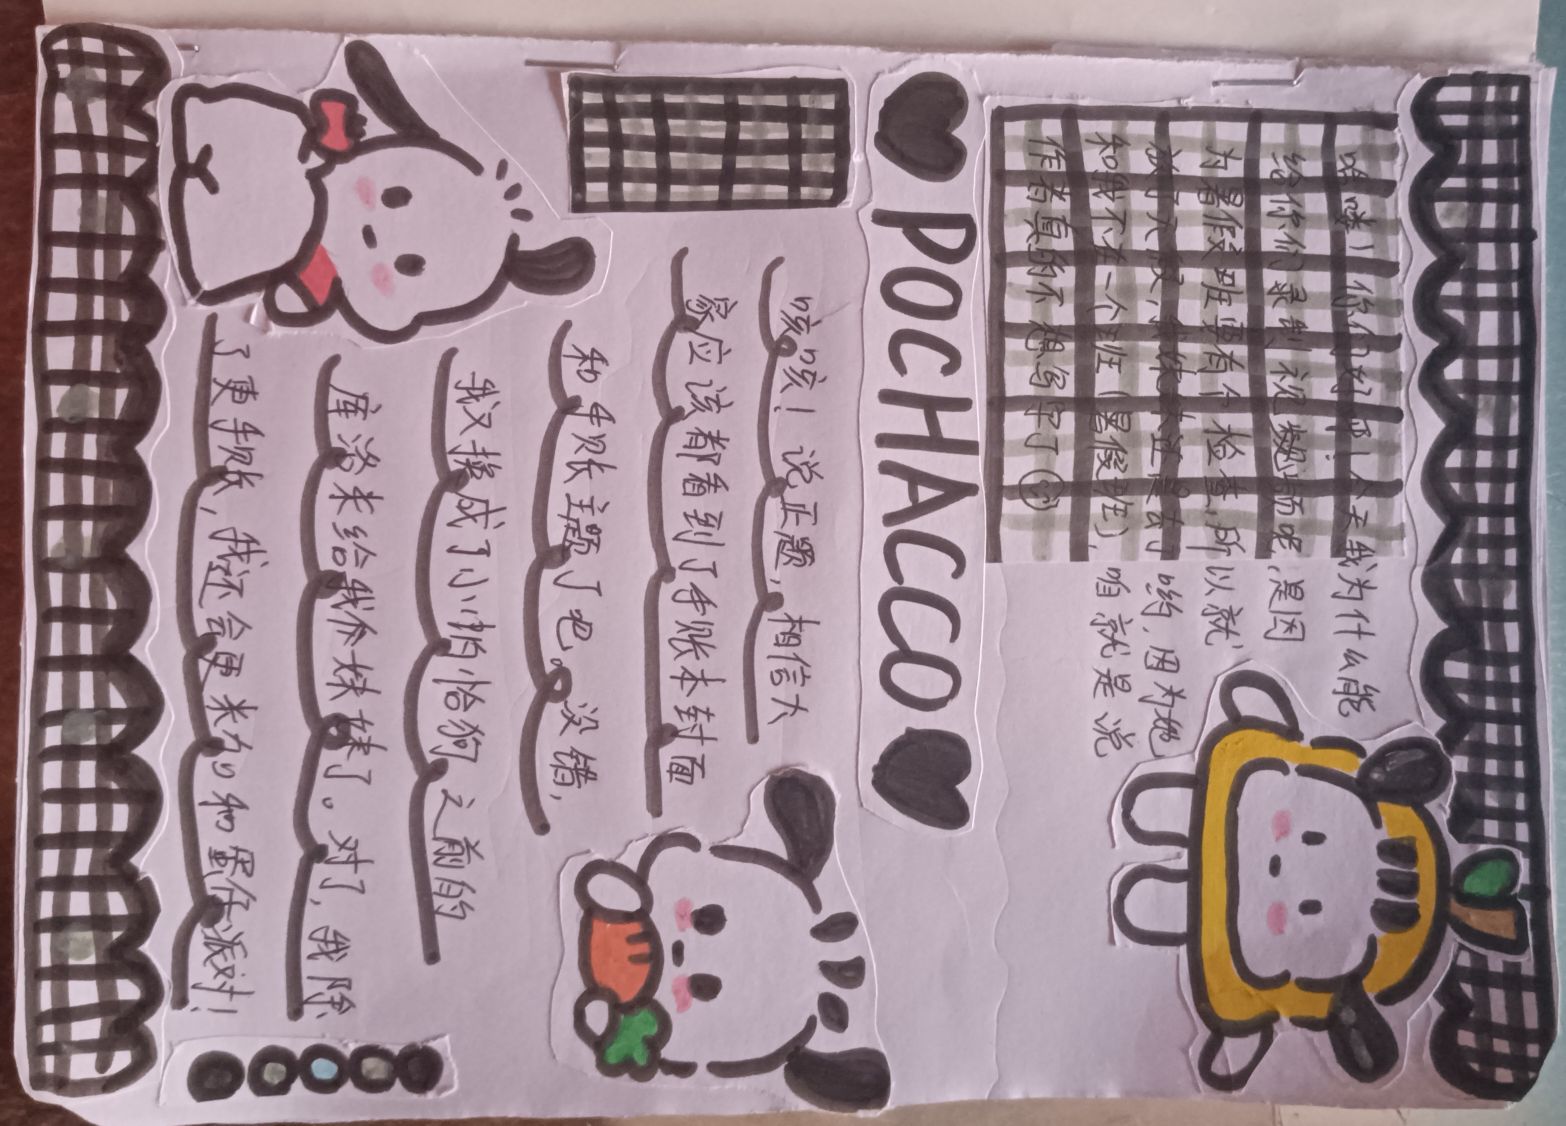 哈喽！你们好耶！今天我为什么能
给你们录制视频呢，是因
为暑假班要有个检查，所以就
放了大假，去了哟，因为她
和我不在一个班（暑假班），咱就是说
作者真的不想写字了
POCHACCO
咳咳！说正题，相信大
家应该都看到了手账本封面
和手账主题了吧。没错，
我又换成了小怕恰狗 之前的
库洛米给我妹妹了。对了，我除
了更手账，我还会更米加和蛋仔派对！